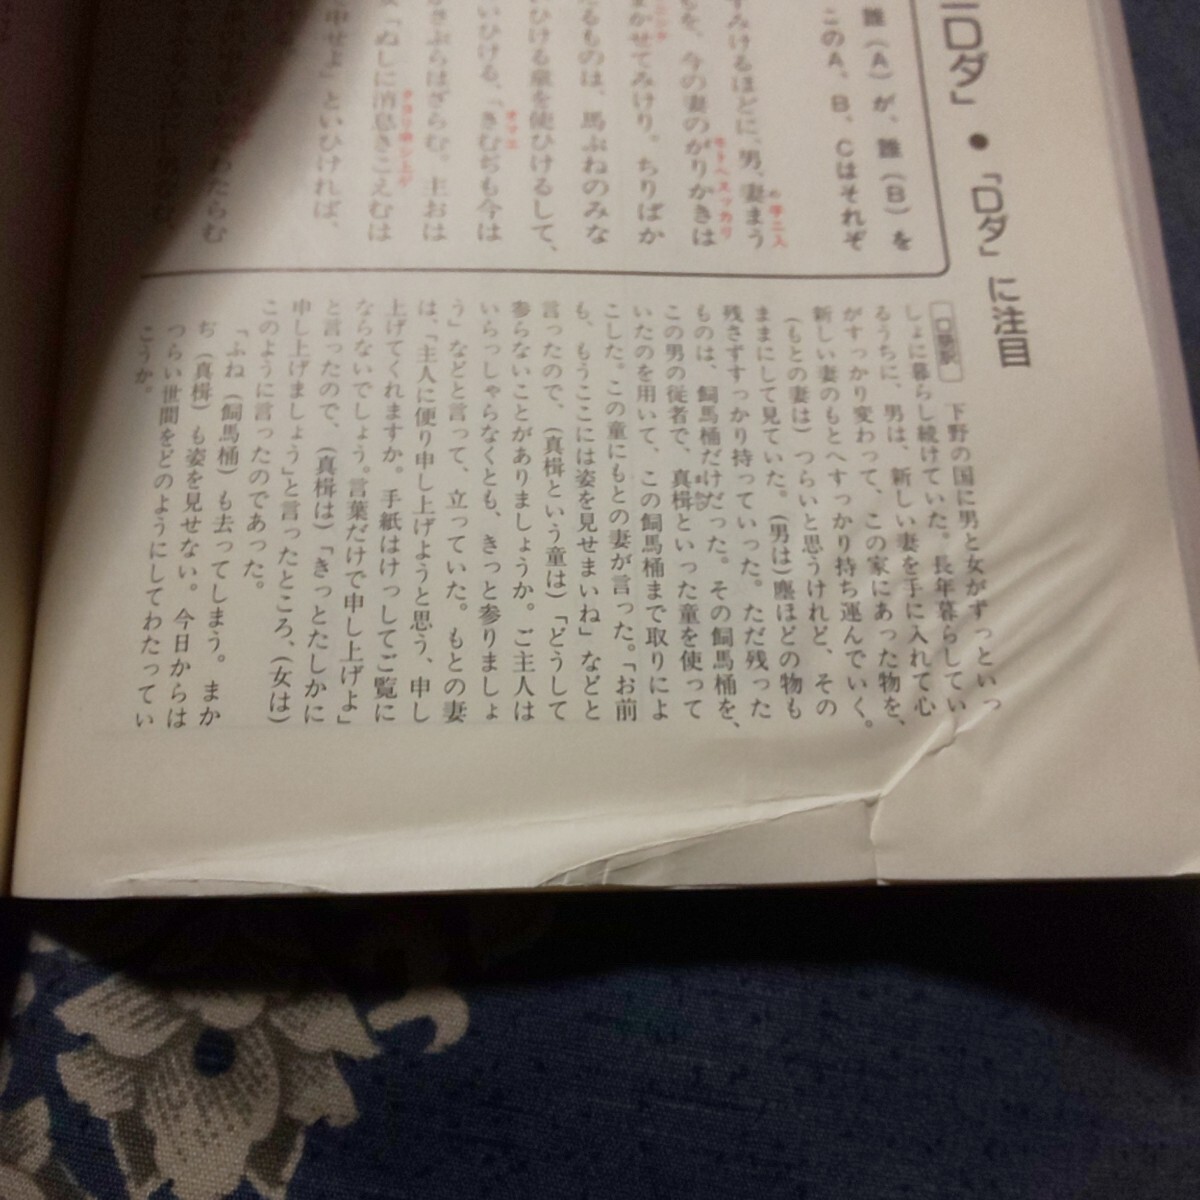 Dダ」●「Dダ」に注目
誰(A)が、誰(B)を
このA、B、Cはそれぞ
すみけるほどに、男、妻まう
を、今の妻のがりかきは
まかせてみけり。ちりばか
るものは、馬ぶねのみな
いひける童を使ひけるして、
いひける、「きむぢも今は
きぶらはざらむ。主おは
「ぬしに消息きこえむは
申せよ」といひければ、
口語訳
下野の国に男と女がずっといっ
しょに暮らし続けていた。長年暮らしてい
るうちに、男は、新しい妻を手に入れて心
がすっかり変わって、この家にあった物を、
新しい妻のもとへすっかり持ち運んでいく。
(もとの妻は)つらいと思うけれど、その
ままにして見ていた。(男は)塵ほどの物も
残さずすっかり持っていった。ただ残った
ものは、飼馬桶だけだった。その飼馬桶を、
この男の従者で、真楫といった童を使って
いたのを用いて、この飼馬桶まで取りによ
こした。この童にもとの妻が言った。「お前
も、もうここには姿を見せまいね」などと
言ったので、(真楫という童は)「どうして
参らないことがありましょうか。ご主人は
いらっしゃらなくとも、きっと参りましょ
う」などと言って、立っていた。もとの妻
は、「主人に便り申し上げようと思う、申し
上げてくれますか。手紙はけっしてご覧に
ならないでしょう。言葉だけで申し上げよ」
と言ったので、(真楫は)「きっとたしかに
申し上げましょう」と言ったところ、(女は)
このように言ったのであった。
「ふね(飼馬桶)も去ってしまう。まか
ぢ(真楫)も姿を見せない。今日からは
つらい世間をどのようにしてわたってい
こうか。